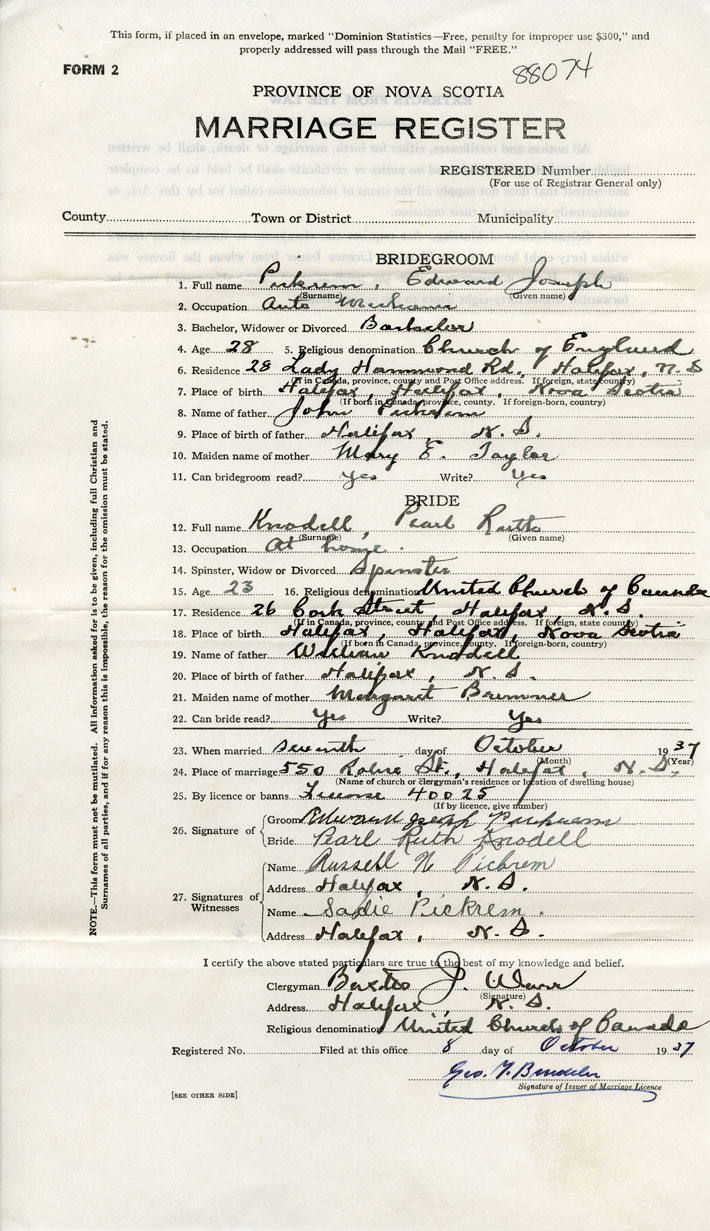 This form, if placed in an envelope, marked "Dominion Statistics—Free, penalty for improper use $300," and
properly addressed will pass through the Mail "FREE."
FORM 2
88074
PROVINCE OF NOVA SCOTIA
MARRIAGE REGISTER
REGISTERED Number
(For use of Registrar General only)
County Town or District Municipality
BRIDEGROOM
1. Full name Pickrem, Edward Joseph
(Surname) (Given name)
2. Occupation Auto Mechanic
3. Bachelor, Widower or Divorced Bachelor
4. Age 28 5. Religious denomination Church of England
6. Residence 28 Lady Hammond Rd., Halifax, N.S
(If in Canada, province, county and Post Office address. If foreign, state county)
7. Place of birth Halifax, Halifax, Nova Scotia
(If born in Canada, province, county. If foreign-born, country)
8. Name of father John Pickrem
9. Place of birth of father Halifax, N.S.
10. Maiden name of mother Mary E. Taylor
11. Can bridegroom read? Yes Write? Yes
BRIDE
12. Full name Knodell, Pearl Ruth
(Surname) (Given name)
13. Occupation At home.
14. Spinster, Widow or Divorced Spinster
15. Age 23 16. Religious denomination United Church of Canada
17. Residence 26 Cork Street, Halifax, N.S.
(If in Canada, province, county and Post Office address. If foreign, state county)
18. Place of birth Halifax, Halifax, Nova Scotia
(If born in Canada, province, county. If foreign-born, country)
19. Name of father William Knodell
20. Place of birth of father Halifax, N.S.
21. Maiden name of mother Margaret Bremner
22. Can bride read? Yes Write? Yes
23. When married seventh day of October 1937
(Month) (Year)
24. Place of marriage 550 St., Halifax, N.S.
(Name of church or clergyman's residence or location of dwelling house)
25. By licence or banns License 40025
(If by licence, give number)
26. Signature of
Groom Edward Joseph Pickrem
Bride Pearl Ruth Knodell
27. Signatures of Witnesses
Name Russell N Pickrem
Address Halifax, N.S.
Name Sadie Pickrem.
Address Halifax, N.S.
I certify the above stated particulars are true to the best of my knowledge and belief.
Clergyman J.
(Signature)
Address Halifax, N.S.
Religious denomination United Church of Canada
Registered No. Filed at this office 8 day of October 1937
Geo.
Signature of Issuer of Marriage Licence
[SEE OTHER SIDE]
NOTE.—This form must not be mutilated. All information asked for is to be given, including full Christian and
Surnames of all parties, and if for any reason this is impossible, the reason for the omission must be stated.